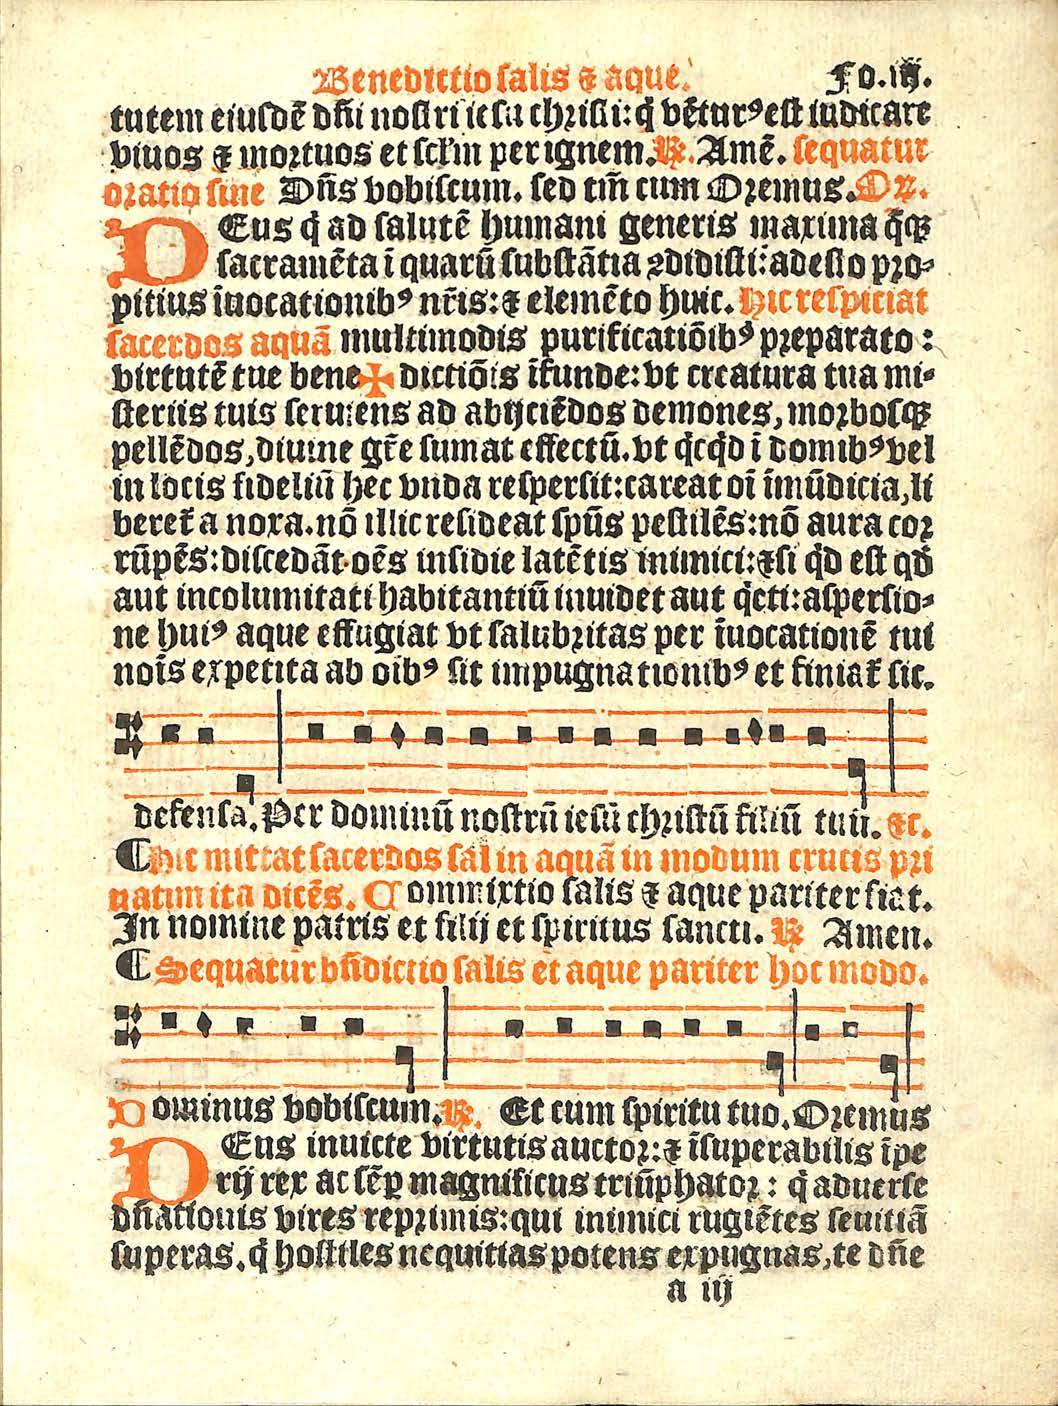 Benedictio salis & aque. Fo.iij.
tutem eiusdẽ dñi nostri iesu christi: q̇ vẽturꝰ est iudicare
viuos & mortuos et sclm̃ per ignem. ℟. Amẽ. sequatur
oratio sine Dñs vobiscum. sed tm̃ cum Oremus. Oꝛ.
DEus q̇ ad salutẽ humani generis maxima q̃qꝫ
sacramẽta ĩ quarũ substãtia ꝯdidisti: adesto pro-
pitius ĩuocationibꝰ nr̃is: & elemẽto huic. Hic respiciat
sacerdos aquã multimodis purificatiõibꝰ preparato:
virtutẽ tue bene✠dictiõis ĩfunde: vt creatura tua mi-
steriis tuis seruiens ad abijciẽdos demones, morbosqꝫ
pellẽdos, diuine gr̃e sumat effectũ. vt q̇cq̇d ĩ domibꝰ vel
in locis fideliũ hec vnda resperserit: careat oĩ ĩmũdicia, li
beret̃ a noxa. nõ illic resideat spũs pestilẽs: nõ aura cor
rũpẽs: discedãt oẽs insidie latẽtis inimici: & si q̇d est qđ
aut incolumitati habitantiũ inuidet aut q̇eti: aspersio-
ne huiꝰ aque effugiat vt salubritas per ĩuocationẽ tui
noĩs expetita ab oĩbꝰ sit impugnationibꝰ et finiat̃ sic.
defensa. Per dominũ nostrũ iesũ christũ filiũ tuũ. &c.
¶ Hic mittat sacerdos sal in aquã in modum crucis pri
uatim ita dicẽs. Commixtio salis & aque pariter fiat.
In nomine patris et filij et spiritus sancti. ℟ Amen.
¶ Sequatur bñdictio salis et aque pariter hoc modo.
Dominus vobiscum. ℟. Et cum spiritu tuo. Oremus
DEus inuicte virtutis auctor: & ĩsuperabilis ĩpe
rij rex ac sẽꝑ magnificus triũphator: q̇ aduerse
dñationis vires reprimis: qui inimici rugiẽtes seuitiã
superas. q̇ hostiles nequitias potens expugnas, te dñe
a iij